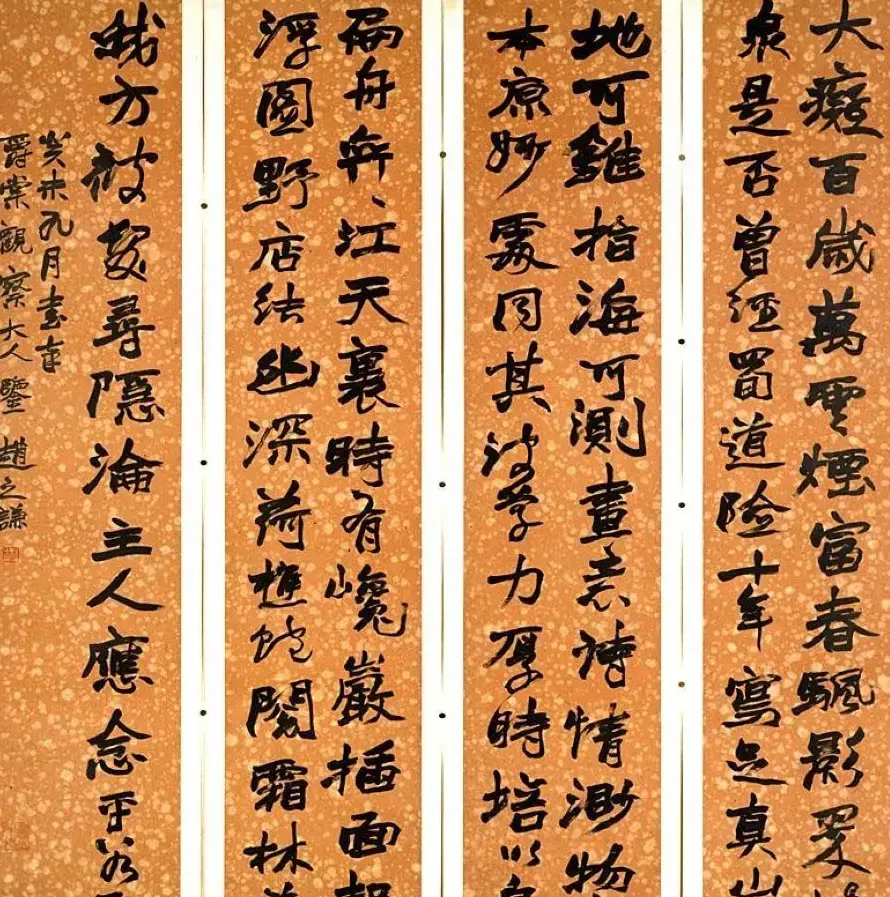 大癡百歲萬雲煙富春颿影
泉是否曾經蜀道險十年寫足真山
地可雖指海可測畫意詩情渺物
本原妙處因其學力厚時培以
扁舟奔江天裏時有巉巖插面
浮圖野店結幽深荷樵蛇閱霜林
我方被髮尋隱淪主人應念平
癸未九月書奉
爵棠觀察大人鑒 趙之謙